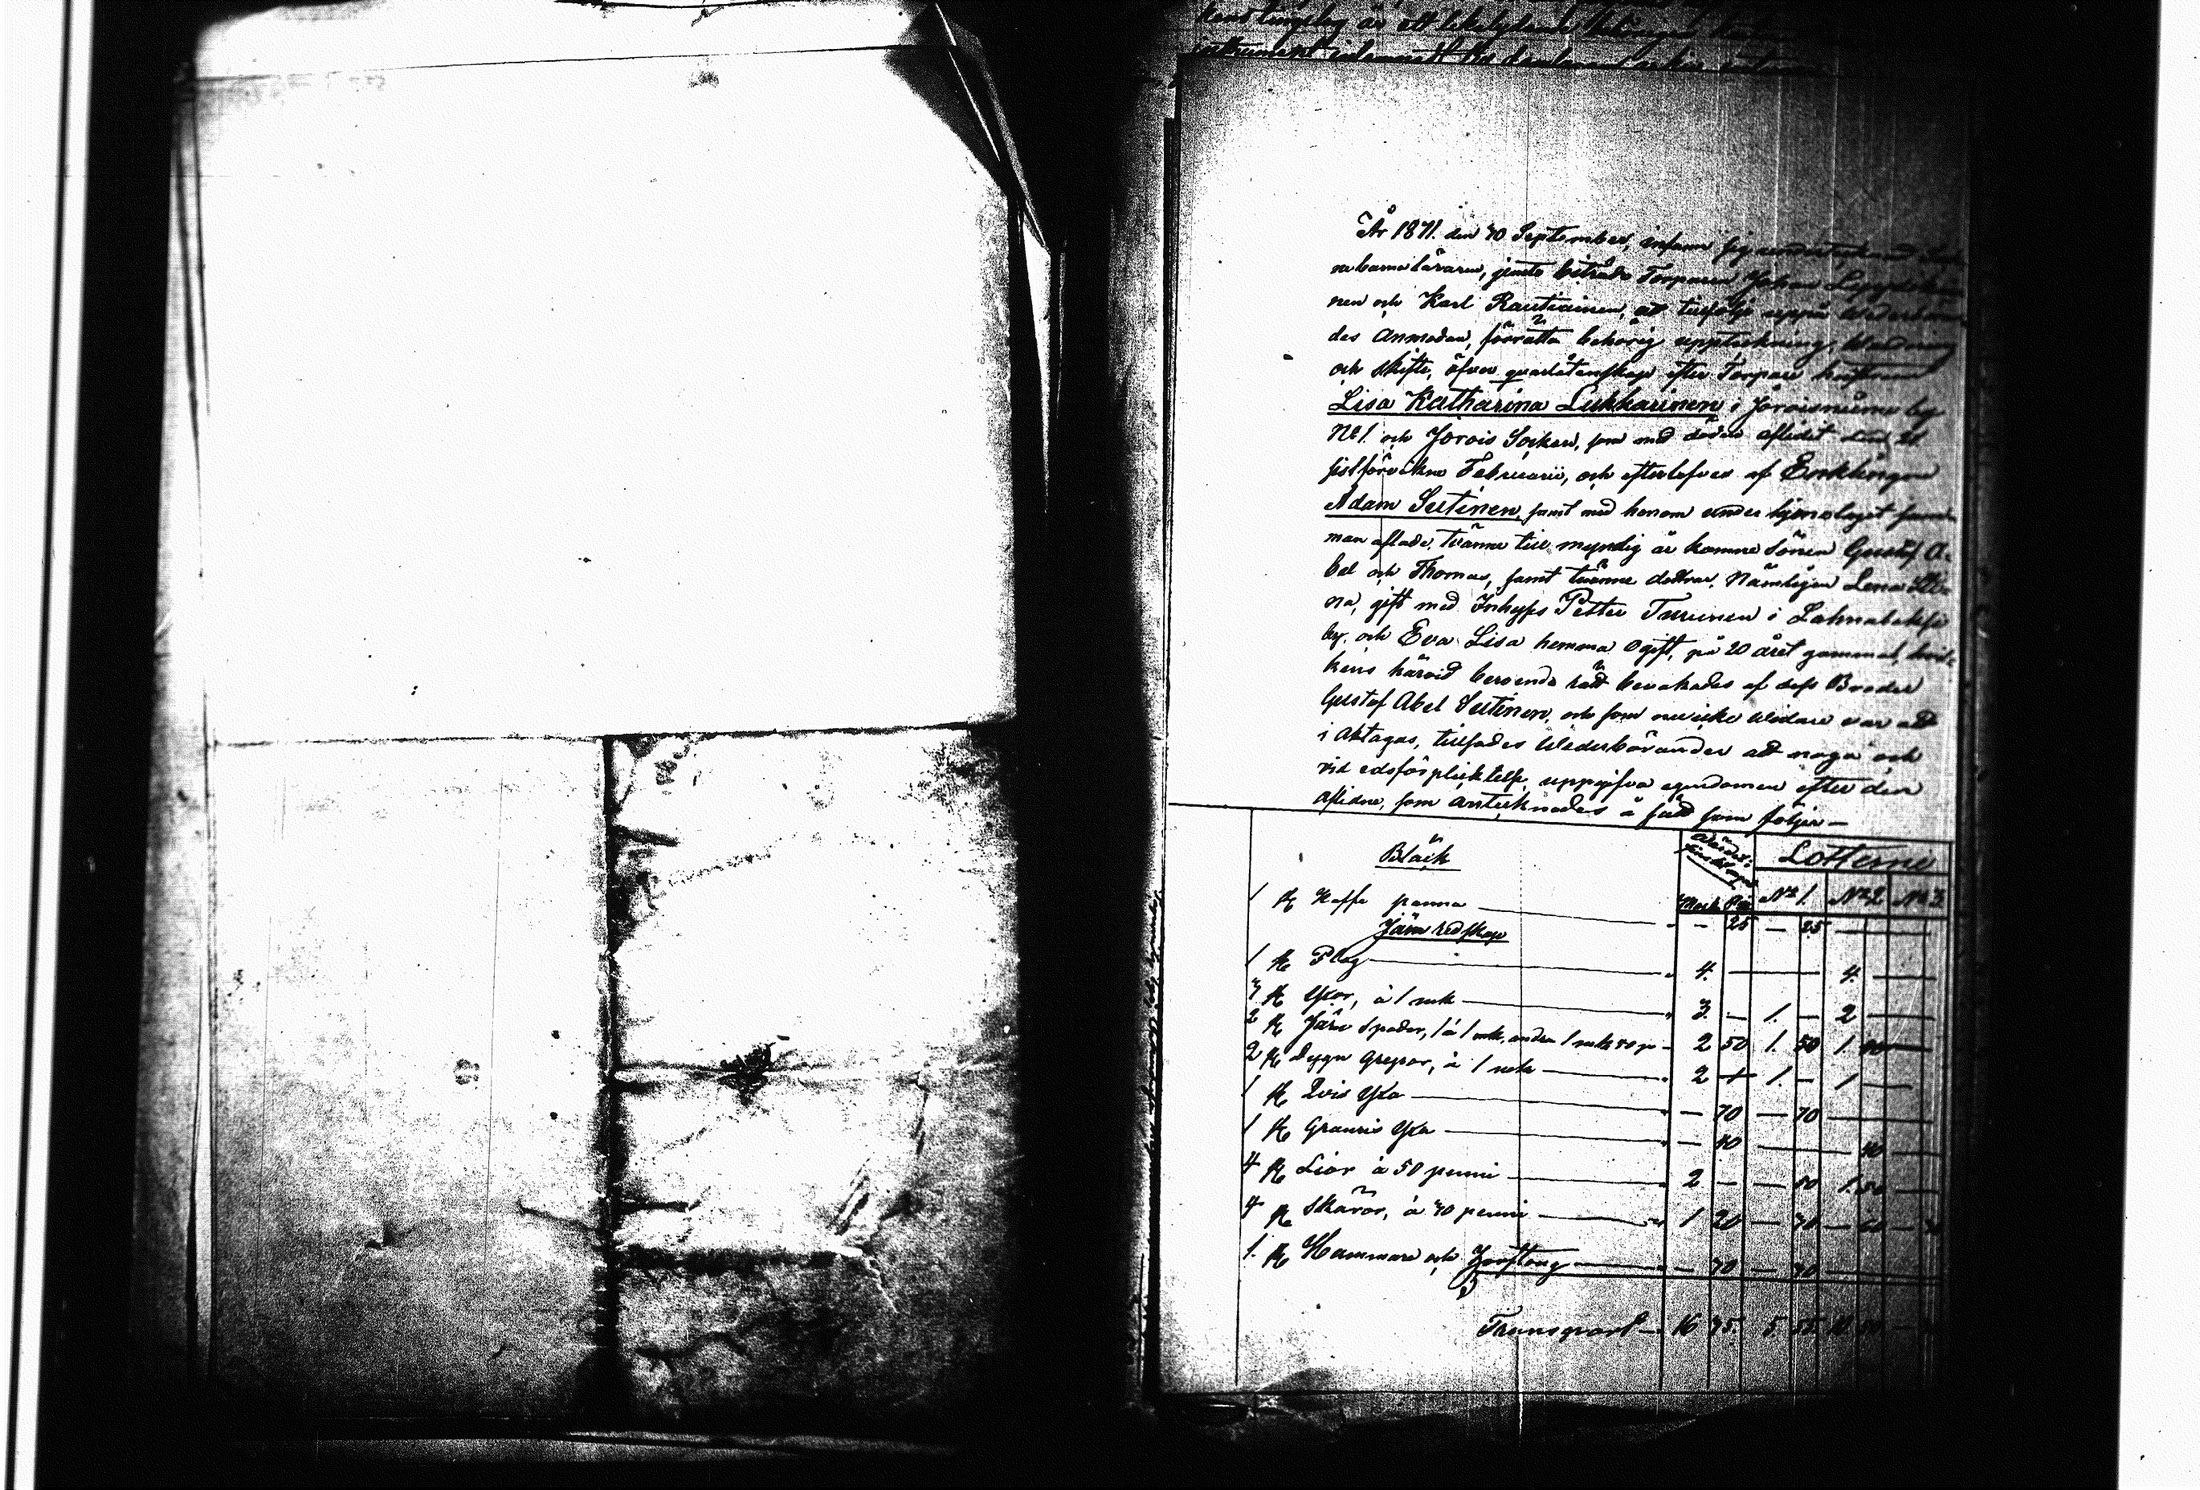 År 1871. den 30 September, infann sig undertecknad
nabarnaläraren, jemte biträde Torparen Johan
nen och Karl Rautiainen, att tillfölje uppå Wederböran-
des anmodan, förrätta behörig uppteckning, wärdering
och skifte, öfver qvarlåtenskap efter Torpare hustrun
Lisa Katharina Lukkarinen i Joroisniemi by
No 1. och Jorois Socken, som med döden aflidit den 21
sistförvikne Februarii, och efterlefves af Enklingen
Adam Sutinen, samt med honom under hjonelaget
man aflade, tvänne till myndig år komne Söner Gustaf A-
bel och Thomas, samt tvänne döttrar, Nämligen Lena Sti-
na, gift med Inhyses Petter Turunen i Lahnalaks
by, och Eva Lisa hemma Ogift, på 20 året gammal, hvil-
kens härvid beroende rätt bevakades af dess Broder
Gustaf Abel Sutinen, och som nu icke widare var att
i Akttagas, tillsades Wederbörander att noga och
vid edsförpliktelse, uppgifva egendomen efter den
aflidne, som antecknades å sätt som följer —
Bläck Lotterne
Mark Pni No 1. No 2 No 3.
1 st Kaffe panna — — 25 — 25
Järn redskap
1 st Plog — 4. — 4.
3 st Yxor, à 1 mk — 3. — 1. — 2
2 st Järn Spadar, 1 à 1 mk, andra 1 mk 50 p — 2 50 1. 50 1.
2 st Dyng grepar, à 1 mk — 2 — 1. — 1 —
1 st Qvis Yxa — — 70 — 70
1 st Granris Yxa — — 40 — 40
4 st Liar à 50 penni — 2 — — 50 1. 50
4 st Skäror, à 30 penni — 1 20 — 30 — 60 — 30
1. st Hammare och — — 30 — 30
Transport — 16 35. 5.